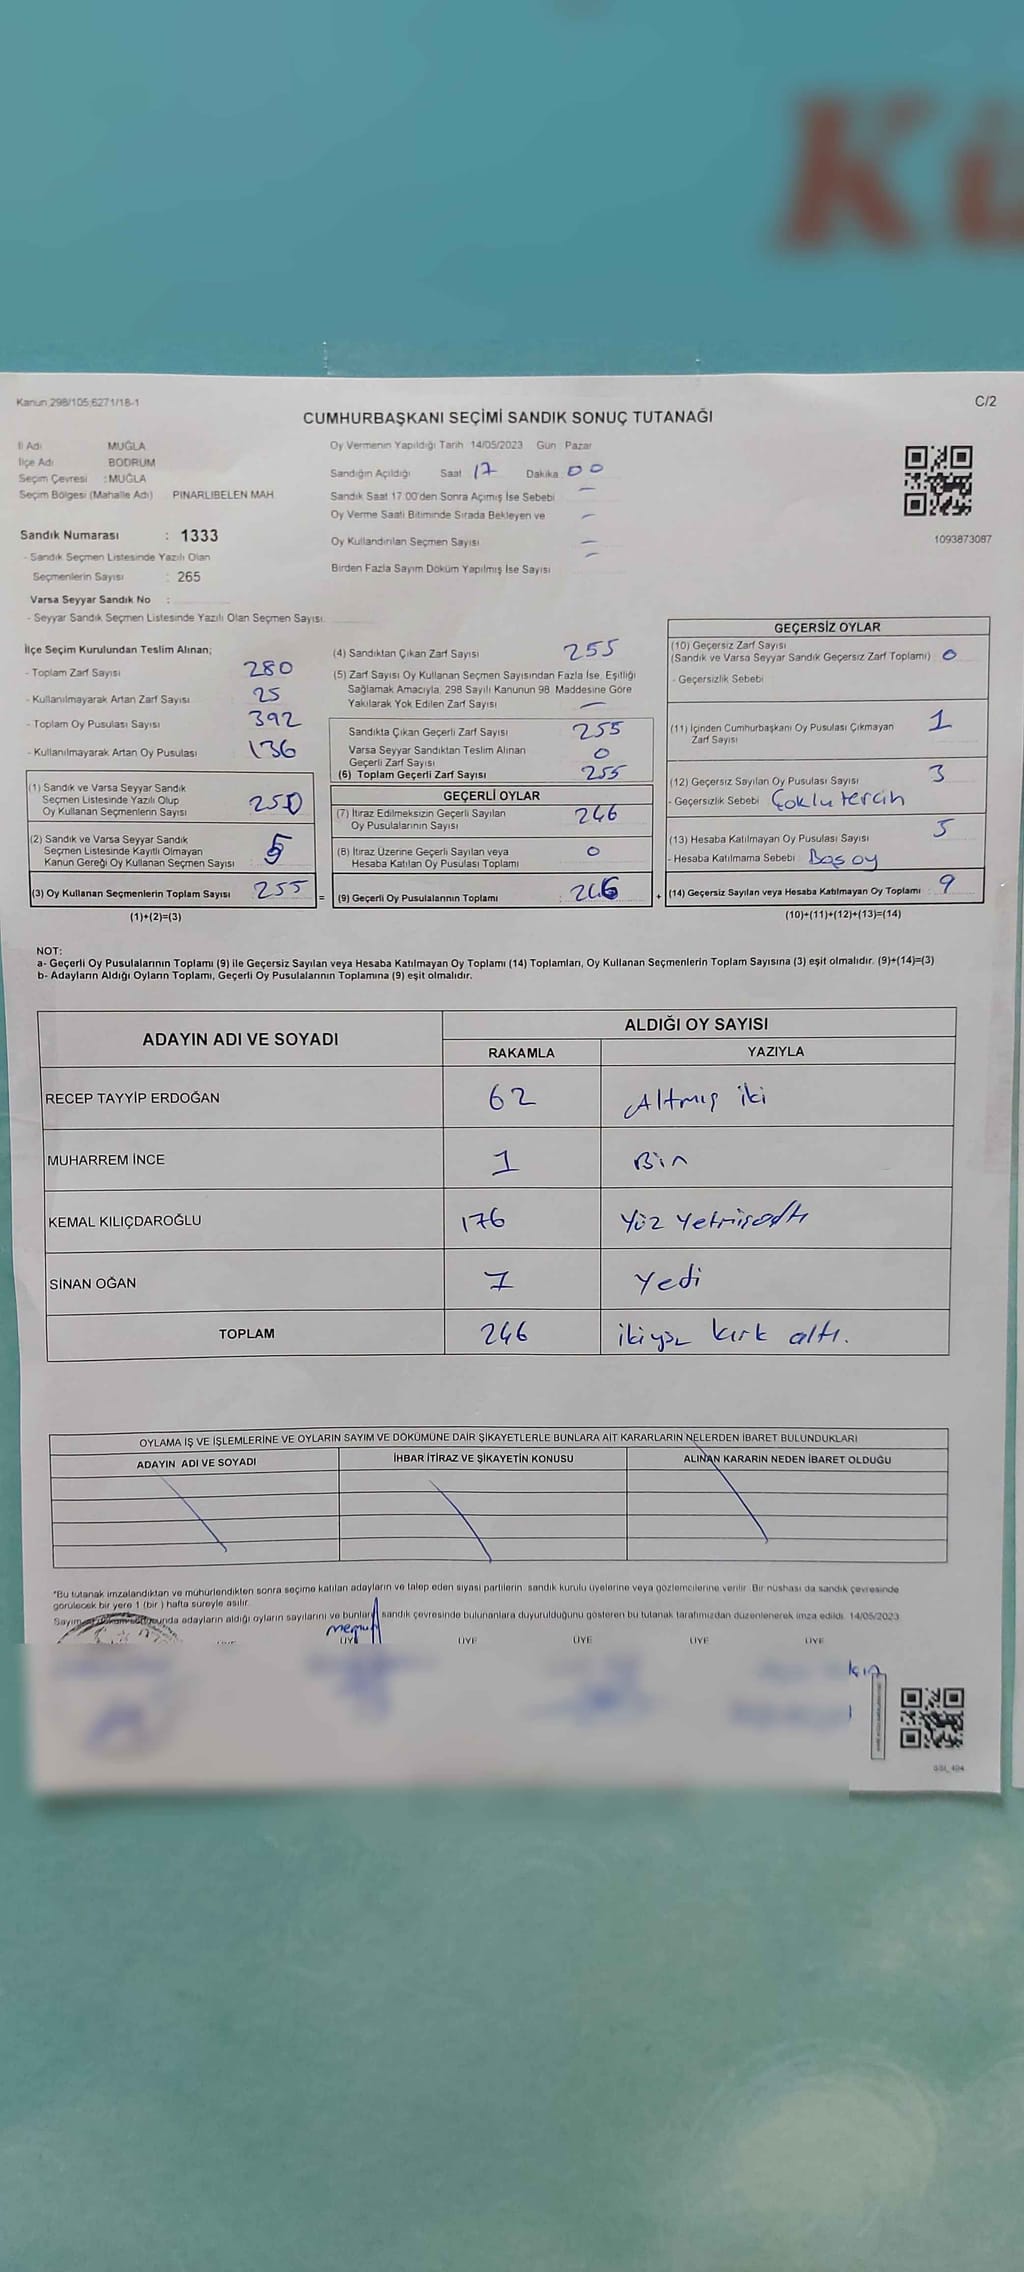 Kü
Kanun 298/105;6271/18-1
C/2
CUMHURBAŞKANI SEÇİMİ SANDIK SONUÇ TUTANAĞI
İl Adı MUĞLA
İlçe Adı BODRUM
Seçim Çevresi : MUĞLA
Seçim Bölgesi (Mahalle Adı) PINARLIBELEN MAH
Sandık Numarası : 1333
- Sandık Seçmen Listesinde Yazılı Olan
Seçmenlerin Sayısı : 265
Varsa Seyyar Sandık No :
- Seyyar Sandık Seçmen Listesinde Yazılı Olan Seçmen Sayısı:
Oy Vermenin Yapıldığı Tarih 14/05/2023 Gün Pazar
Sandığın Açıldığı Saat 17 Dakika 00
Sandık Saat 17.00'den Sonra Açımış İse Sebebi —
Oy Verme Saati Bitiminde Sırada Bekleyen ve —
Oy Kullandırılan Seçmen Sayısı —
Birden Fazla Sayım Döküm Yapılmış İse Sayısı —
1093873087
İlçe Seçim Kurulundan Teslim Alınan;
- Toplam Zarf Sayısı 280
- Kullanılmayarak Artan Zarf Sayısı 25
- Toplam Oy Pusulası Sayısı 392
- Kullanılmayarak Artan Oy Pusulası 136
(1) Sandık ve Varsa Seyyar Sandık
Seçmen Listesinde Yazılı Olup
Oy Kullanan Seçmenlerin Sayısı 250
(2) Sandık ve Varsa Seyyar Sandık
Seçmen Listesinde Kayıtlı Olmayan
Kanun Gereği Oy Kullanan Seçmen Sayısı 5
(3) Oy Kullanan Seçmenlerin Toplam Sayısı 255 =
(1)+(2)=(3)
(4) Sandıktan Çıkan Zarf Sayısı 255
(5) Zarf Sayısı Oy Kullanan Seçmen Sayısından Fazla İse, Eşitliği
Sağlamak Amacıyla, 298 Sayılı Kanunun 98. Maddesine Göre
Yakılarak Yok Edilen Zarf Sayısı —
Sandıkta Çıkan Geçerli Zarf Sayısı 255
Varsa Seyyar Sandıktan Teslim Alınan
Geçerli Zarf Sayısı 0
(6) Toplam Geçerli Zarf Sayısı 255
GEÇERLİ OYLAR
(7) İtiraz Edilmeksizin Geçerli Sayılan
Oy Pusulalarının Sayısı 246
(8) İtiraz Üzerine Geçerli Sayılan veya
Hesaba Katılan Oy Pusulası Toplamı 0
(9) Geçerli Oy Pusulalarının Toplamı : 246 +
GEÇERSİZ OYLAR
(10) Geçersiz Zarf Sayısı
(Sandık ve Varsa Seyyar Sandık Geçersiz Zarf Toplamı) 0
- Geçersizlik Sebebi
(11) İçinden Cumhurbaşkanı Oy Pusulası Çıkmayan
Zarf Sayısı 1
(12) Geçersiz Sayılan Oy Pusulası Sayısı 3
- Geçersizlik Sebebi Çoklu tercih
(13) Hesaba Katılmayan Oy Pusulası Sayısı 5
- Hesaba Katılmama Sebebi Boş oy
(14) Geçersiz Sayılan veya Hesaba Katılmayan Oy Toplamı : 9
(10)+(11)+(12)+(13)=(14)
NOT:
a- Geçerli Oy Pusulalarının Toplamı (9) ile Geçersiz Sayılan veya Hesaba Katılmayan Oy Toplamı (14) Toplamları, Oy Kullanan Seçmenlerin Toplam Sayısına (3) eşit olmalıdır. (9)+(14)=(3)
b- Adayların Aldığı Oyların Toplamı, Geçerli Oy Pusulalarının Toplamına (9) eşit olmalıdır.
ADAYIN ADI VE SOYADI ALDIĞI OY SAYISI
RAKAMLA YAZIYLA
RECEP TAYYİP ERDOĞAN 62 Altmış iki
MUHARREM İNCE 1 Bir
KEMAL KILIÇDAROĞLU 176 Yüz Yetmişaltı
SİNAN OĞAN 7 Yedi
TOPLAM 246 ikiyüz kırk altı.
OYLAMA İŞ VE İŞLEMLERİNE VE OYLARIN SAYIM VE DÖKÜMÜNE DAİR ŞİKAYETLERLE BUNLARA AİT KARARLARIN NELERDEN İBARET BULUNDUKLARI
ADAYIN ADI VE SOYADI İHBAR İTİRAZ VE ŞİKAYETİN KONUSU ALINAN KARARIN NEDEN İBARET OLDUĞU
*Bu tutanak imzalandıktan ve mühürlendikten sonra seçime katılan adayların ve talep eden siyasi partilerin sandık kurulu üyelerine veya gözlemcilerine verilir. Bir nüshası da sandık çevresinde
görülecek bir yere 1 (bir) hafta süreyle asılır.
Sayım adayların aldığı oyların sayılarını ve bunların sandık çevresinde bulunanlara duyurulduğunu gösteren bu tutanak tarafımızdan düzenlenerek imza edildi. 14/05/2023
memur
ÜYE ÜYE ÜYE ÜYE ÜYE